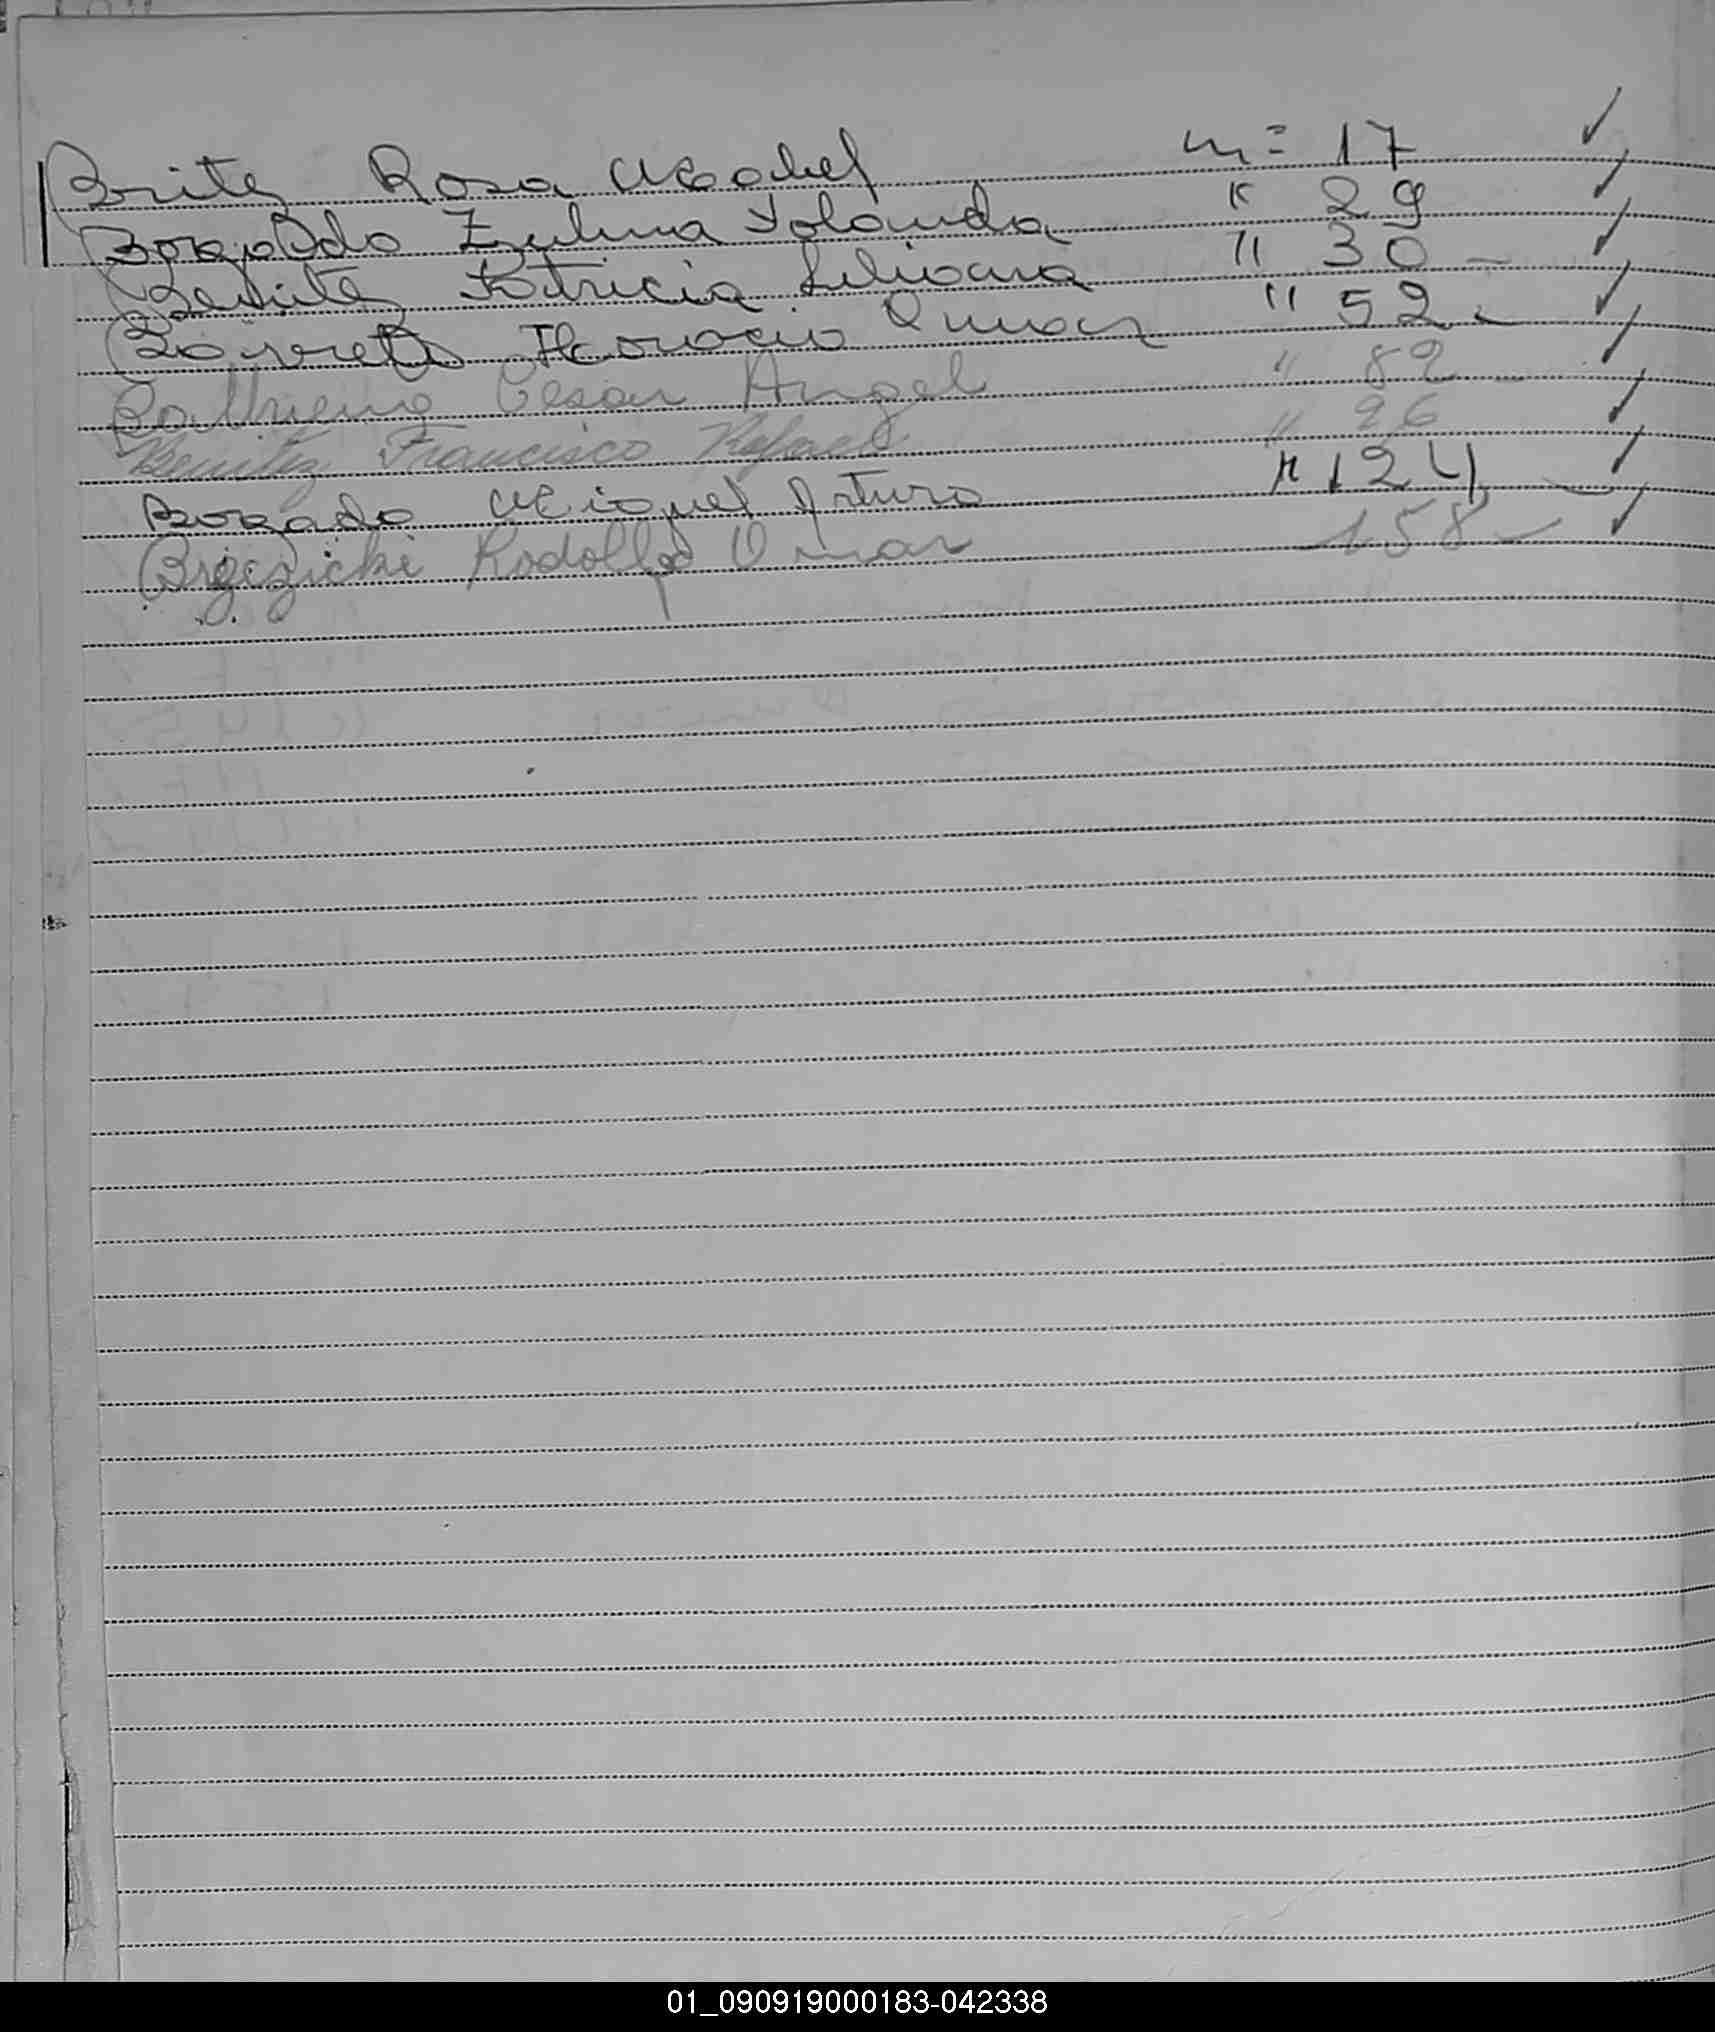 Britez Rosa Mabel n= 17 ✓
Bogado Zulma Yolanda " 29 ✓
Benitez Patricia Liliana " 30 - ✓
Barreto Horacio Omar " 52 - ✓
Cesar Angel " 82 - ✓
Benitez Francisco Rafael " 96 ✓
Bogado Miguel Arturo " 124 - ✓
Brzezicki Rodolfo Omar - 158 - ✓
01_090919000183-042338